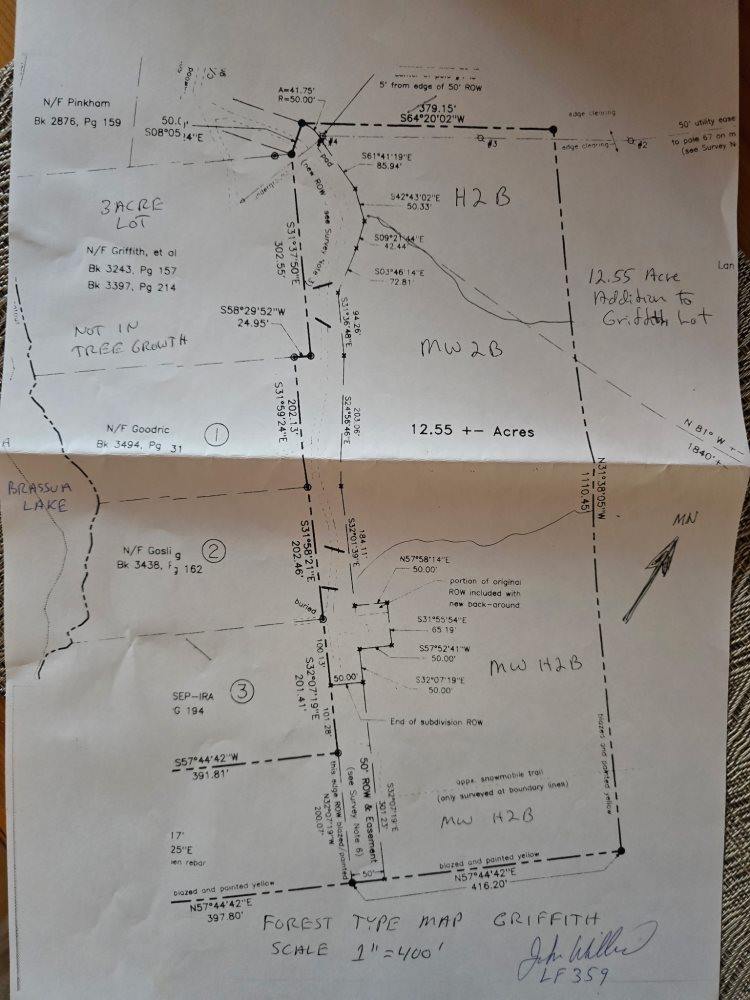 5' from edge of 50' ROW
A=41.75'
R=50.00'
N/F Pinkham
Bk 2876, Pg 159
S08°05
4"E
379.15'
S64°20'02"W
edge clearing
50' utility ease
edge clearing
to pole 67 on m
(see Survey N
#4
#3
#2
pad
(new ROW - see Survey Note
S61°41'19"E
85.94'
S42°43'02"E
50.33'
H2B
3 ACRE
LOT
S09°21'44"E
42.44'
S31°37'50"E
302.55'
N/F Griffith, et al
Bk 3243, Pg 157
Bk 3397, Pg 214
S03°46'14"E
72.81'
Lan
12.55 Acre
Addition to
Griffith Lot
S58°29'52"W
24.95'
94.26'
S31°36'48"E
NOT IN
TREE GROWTH
MW2B
202.13'
S31°59'24"E
203.06'
S24°56'46"E
N/F Goodric
Bk 3494, Pg 31
1
12.55 +- Acres
N 81° W +-
1840' +
BRASSUA
LAKE
N31°38'05"W
1110.45'
MN
S31°58'21"E
202.46'
184.11'
S32°01'39"E
N/F Gosli g
Bk 3438, 162
2
N57°58'14"E
50.00'
portion of original
ROW included with
new back-around
buried
S31°55'54"E
65.19'
S57°52'41"W
50.00'
MW H2B
100.13'
S32°07'19"E
201.41'
S32°07'19"E
50.00'
50.00'
SEP-IRA
G 194
3
101.28'
End of subdivision ROW
blazed and painted yellow
S57°44'42"W
391.81'
this edge ROW blazed/painted
N32°07'19"W
200.07'
50' ROW & Easement
(see Survey Note 6)
S32°07'19"E
301.23'
appx. snowmobile trail
(only surveyed at boundary lines)
MW H2B
17'
25"E
en rebar
blazed and painted yellow
N57°44'42"E
397.80'
50'
blazed and painted yellow
N57°44'42"E
416.20'
FOREST TYPE MAP GRIFFITH
SCALE 1"=400'
LF 359